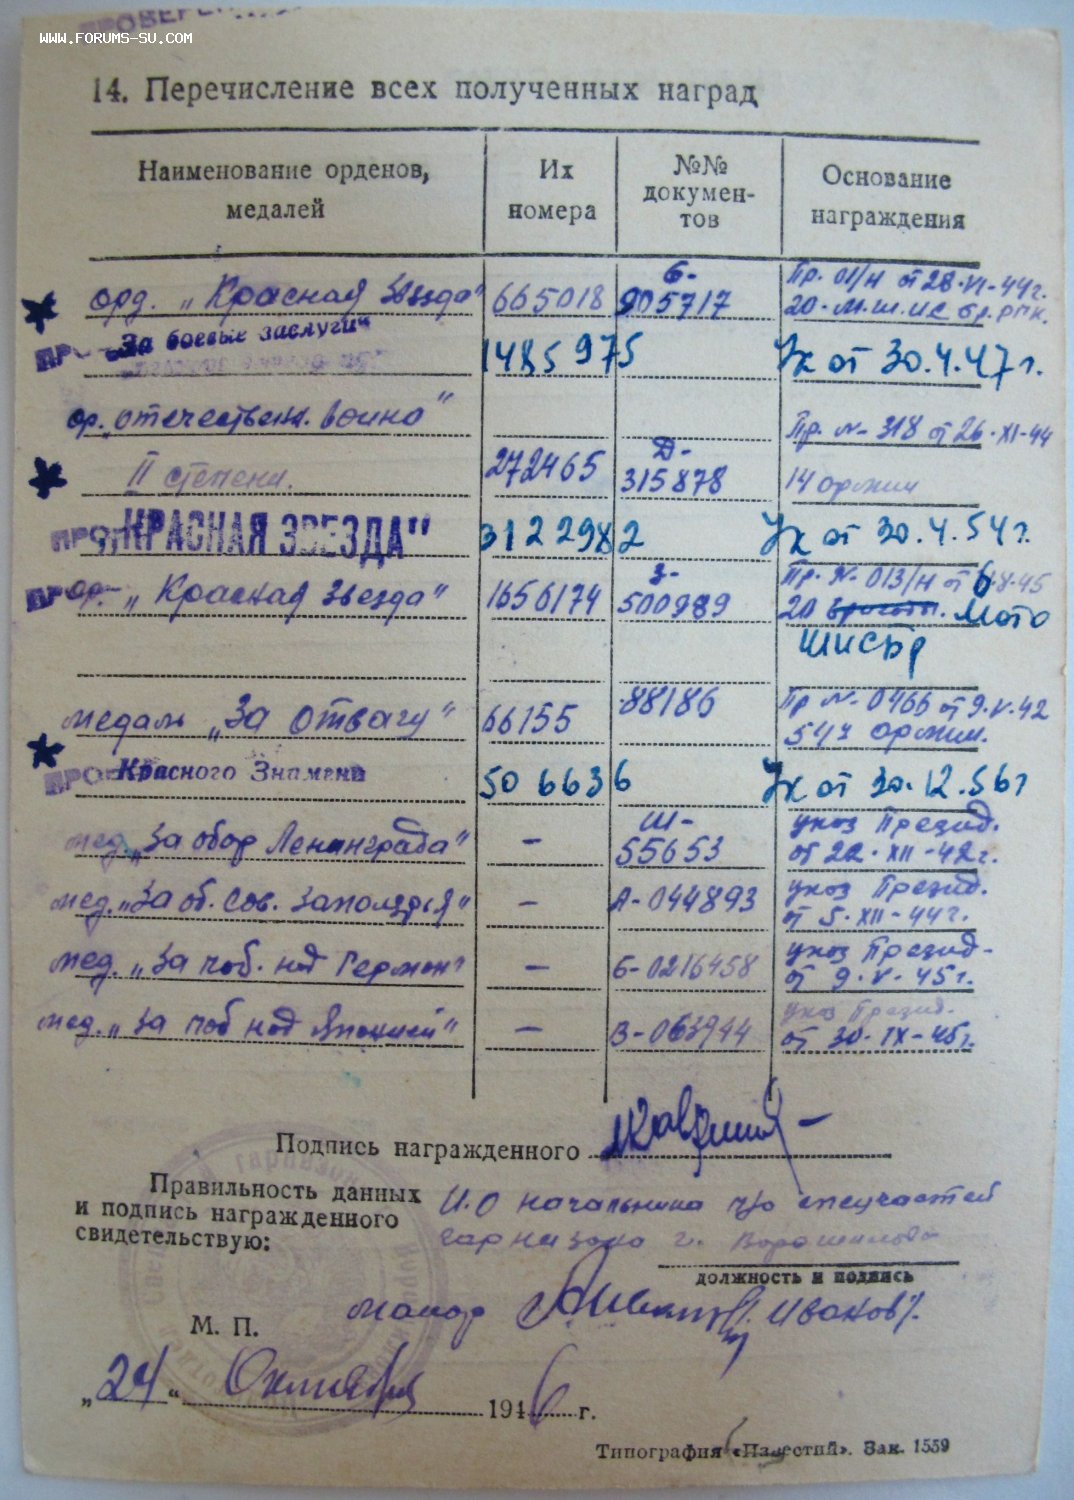 ПРОВЕРЕНО
WWW.FORUMS-SU.COM
14. Перечисление всех полученных наград
Наименование орденов, медалей
Их номера
№№ докумен-тов
Основание награждения
орд. „Красная Звезда" 665018 Б-905717 Пр. 011/н от 28·VI-44г.
20-м.ш.ис бр. РГК.
„За боевые заслуги" 1485975 Ук от 30.4.47г.
ор. „отечествен. война" Пр. N- 318 от 26·XI-44
II степени. 272465 Д-315878 14 армии
„КРАСНАЯ ЗВЕЗДА" 3122982 Ук от 30.4.54г.
ор. „Красная Звезда" 1656174 З-500989 Пр. N- 013/н от
20 бригады. Мото
шисбр
медаль „За отвагу" 66155 88186 Пр N- 0466 от 9·V-42
54й армии.
Красного Знамени 506636 Ук от 30.12.56г
мед. „За обор Ленинграда" - Ш-55653 указ Презид.
от 22·XII-42г.
мед. „За об. Сов. Заполярья" - А-044893 указ Презид.
от 5·XII-44г.
мед. „За поб. над Герман" - Б-0216458 указ Презид-
от 9·V-45г.
мед. „За поб над Японией" - В-063944 указ Презид.
от 30·IX-45г.
Подпись награжденного
Правильность данных
и подпись награжденного
свидетельствую:
И.О начальника п/о спецчастей
гарнизона г. Ворошилова
должность и подпись
майор Иванов
М. П.
„24" Октября 1946 г.
Типография «Известий». Зак. 1559